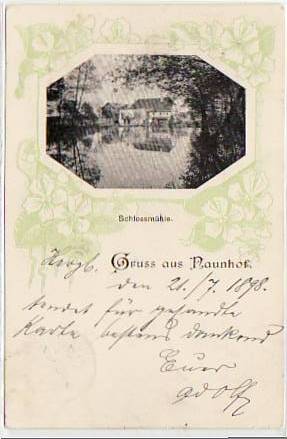 Schlossmühle.
Herzl. Gruss aus Naunhof.
den 21./7. 1898.
sendet für gesandte
Karte bestens dankend
Euer
Adolf